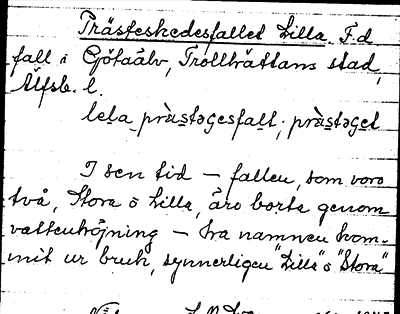 Prästeskedesfallet Lilla. F.d
fall i Götaälv, Trollhättans stad,
Älfsb. l.
lela prästəgesfalt; prästəget
I sen tid — fallen, som voro
två, Stora o Lilla, äro borta genom
vattenhöjning — ha namnen kom-
mit ur bruk, synnerligen "Lilla" o "Stora"